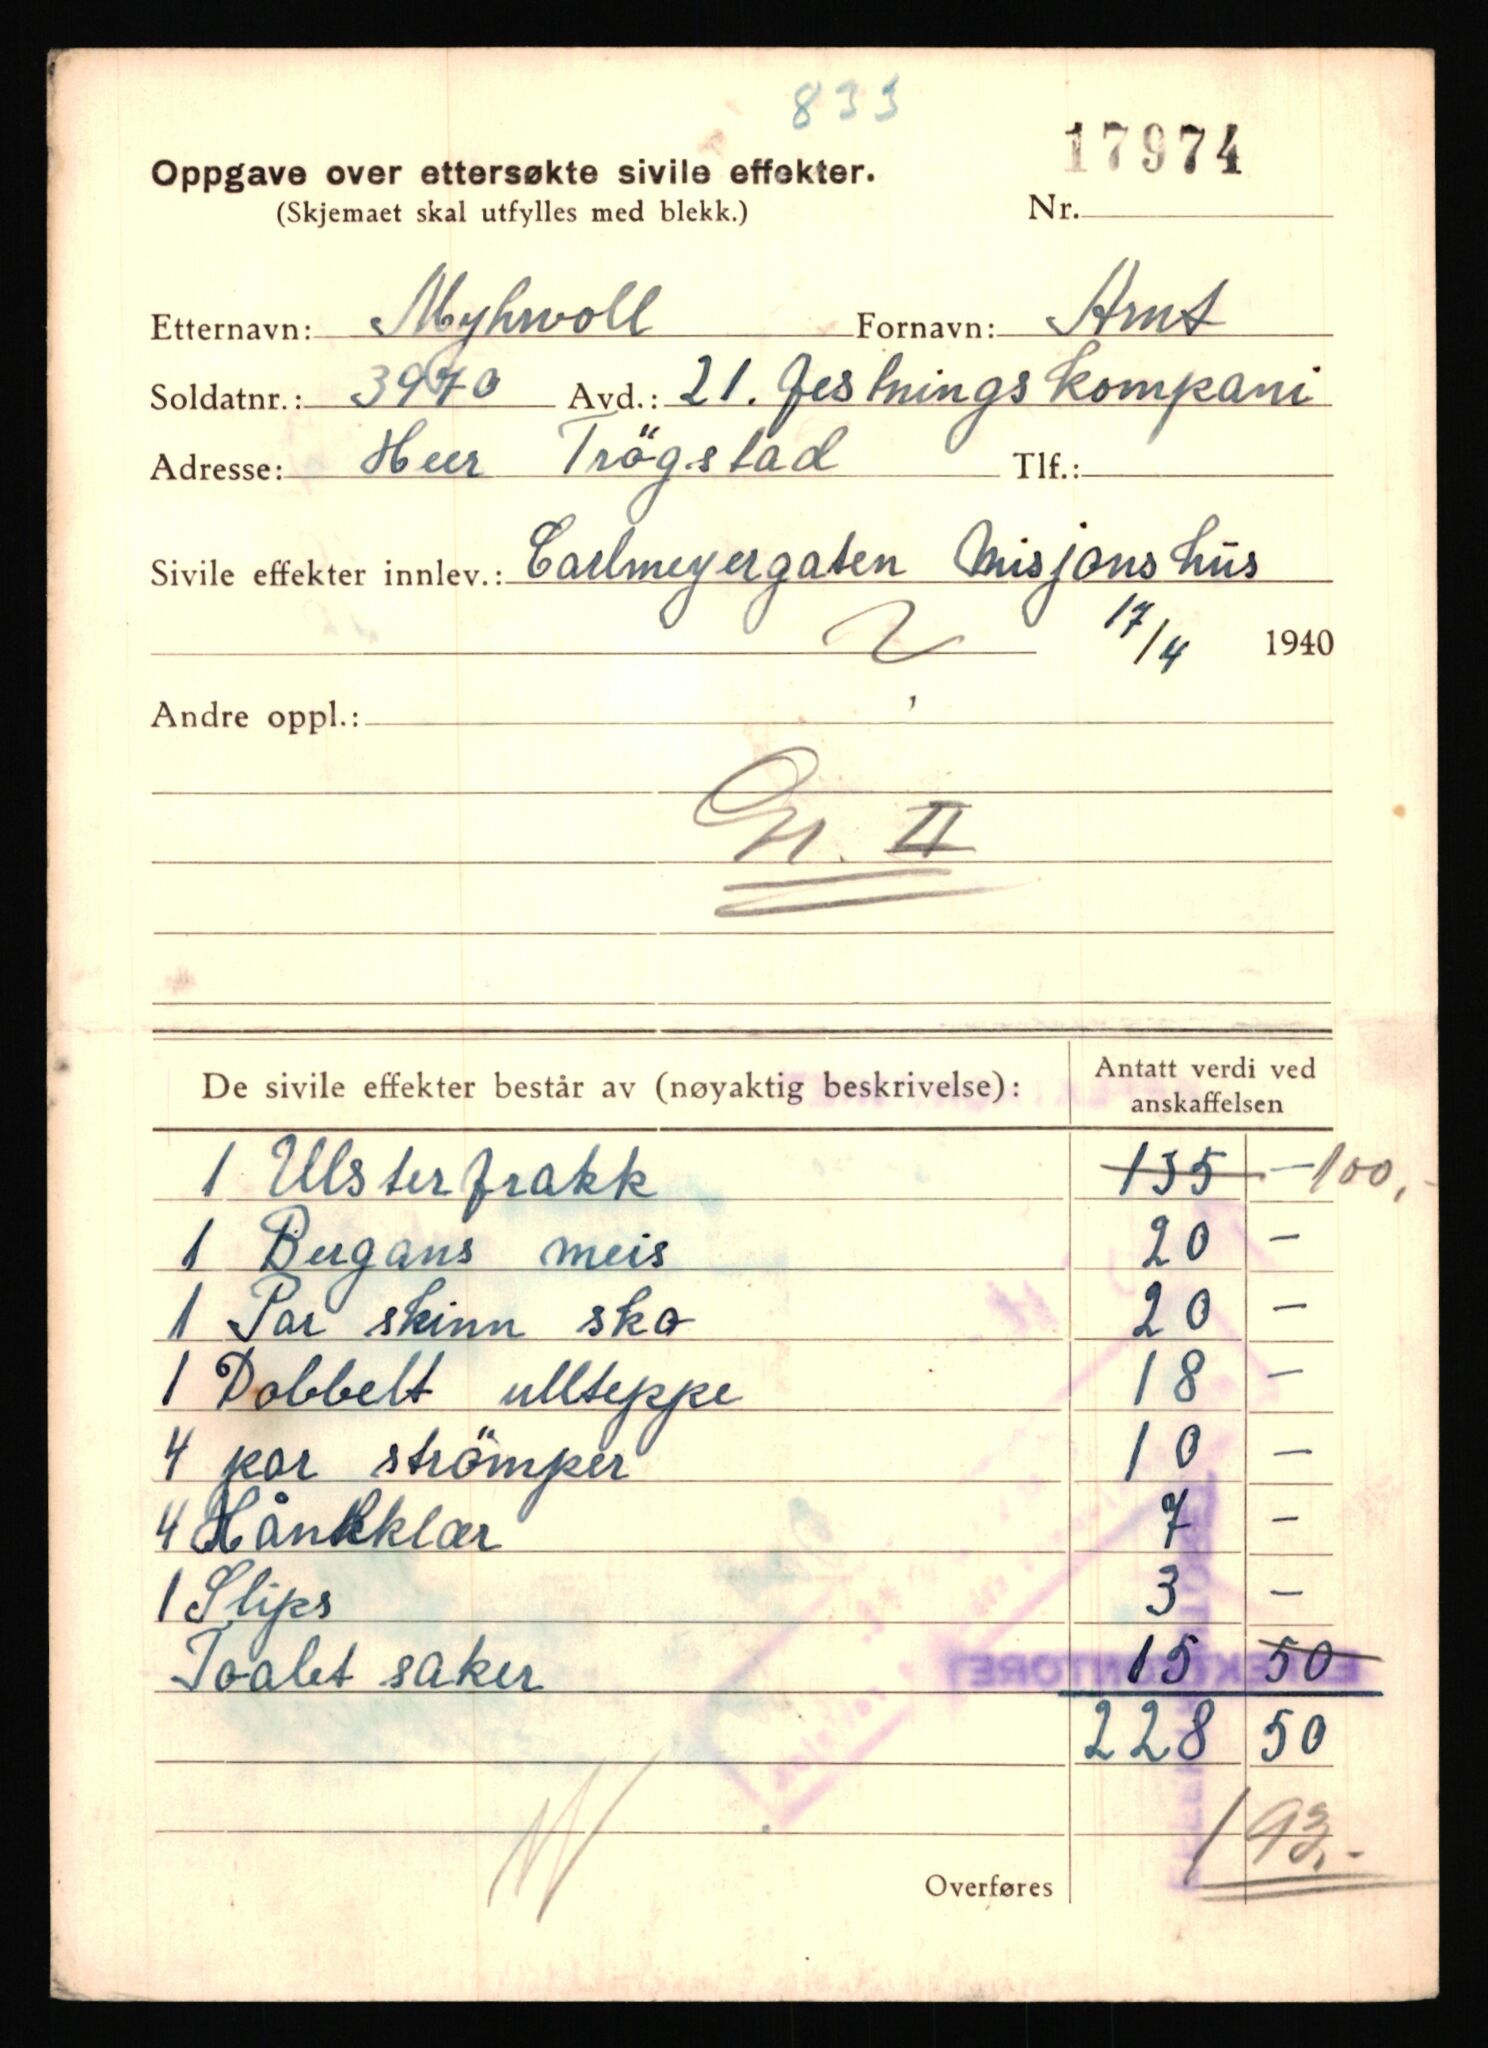 833
17974
Oppgave over ettersøkte sivile effekter.
(Skjemaet skal utfylles med blekk.)
Nr.
Etternavn: Myhrvoll Fornavn: Arnt
Soldatnr.: 3970 Avd.: 21. festnings kompani
Adresse: Heer Trögstad Tlf.:
Sivile effekter innlev.: Carlmeyergaten Misjonshus
17/4 1940
Andre oppl.:
Gr. II
De sivile effekter består av (nøyaktig beskrivelse): Antatt verdi ved
anskaffelsen
1 Ulsterfrakk 135 - 100,-
1 Bergans meis 20 -
1 Par skinn sko 20 -
1 Dobbelt ullteppe 18 -
4 par strömper 10 -
4 Hånkklær 7 -
1 Slips 3 -
Toalet saker 15 50
228 50
193,-
Overføres